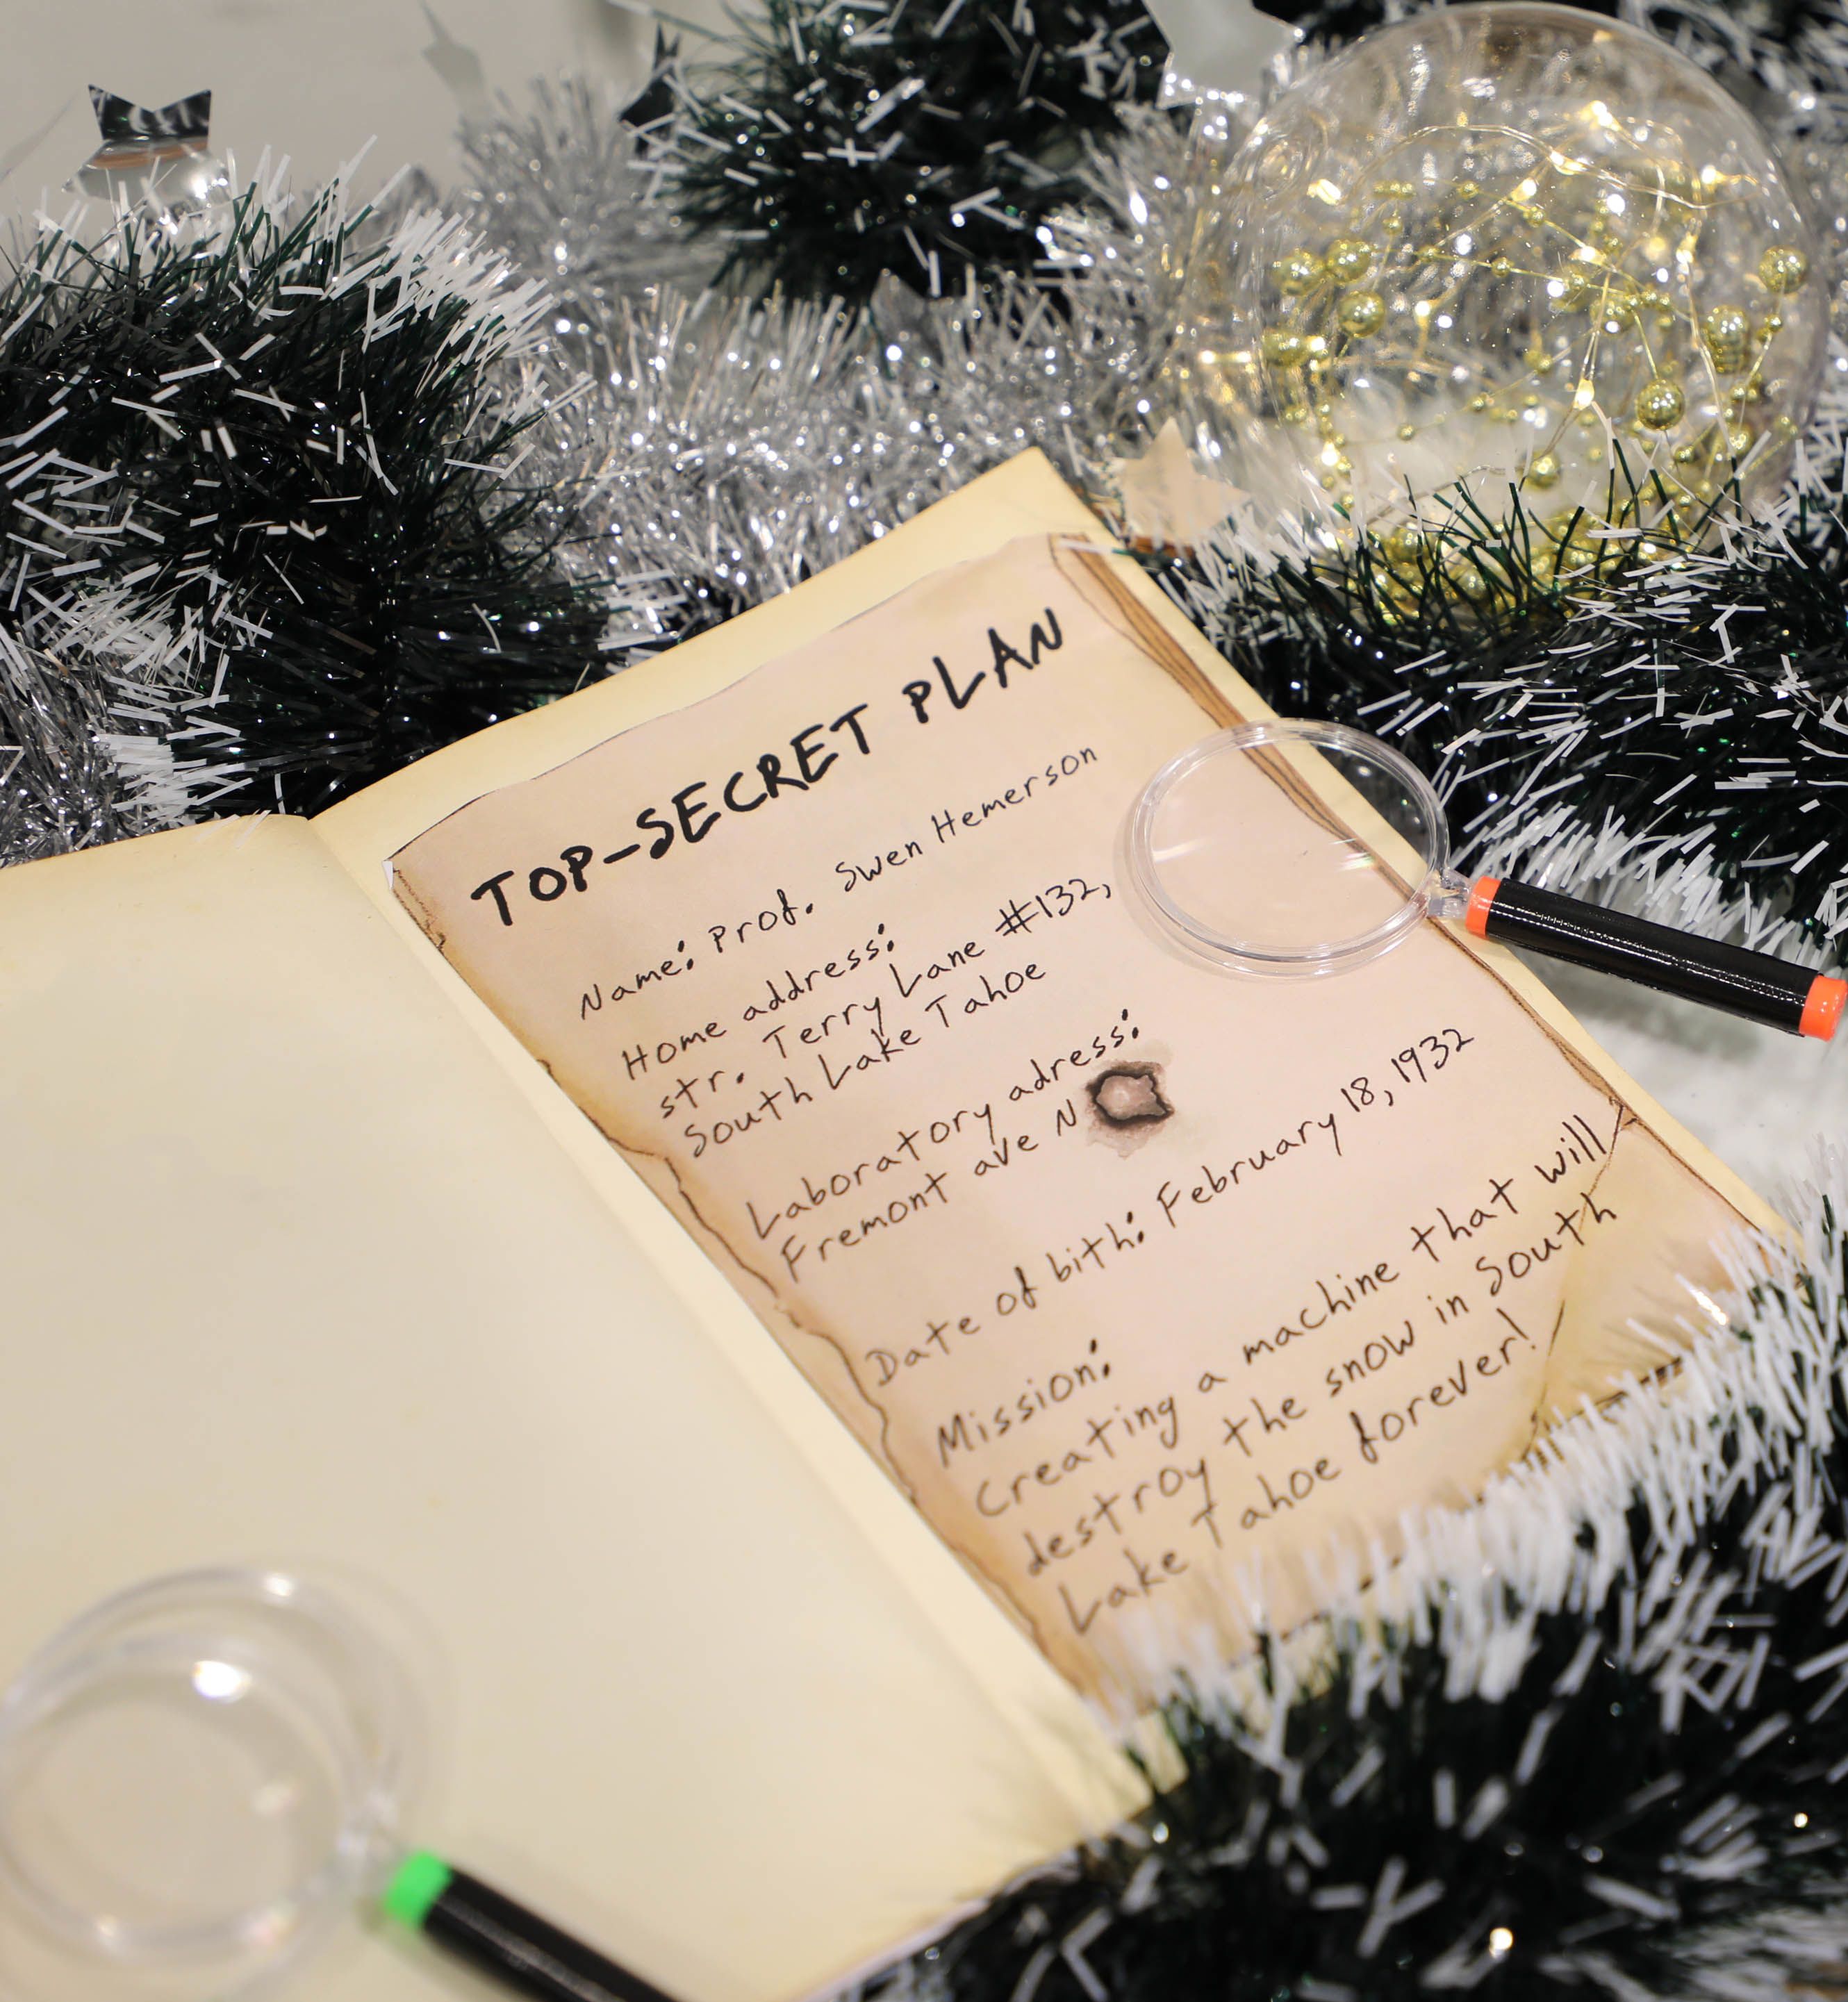 TOP-SECRET PLAN
Name: Prof. Swen Hemerson
Home address:
str. Terry Lane #132,
South Lake Tahoe
Laboratory adress:
Fremont ave N
Date of bith: February 18, 1932
Mission:
Creating a machine that will
destroy the snow in South
Lake Tahoe forever!